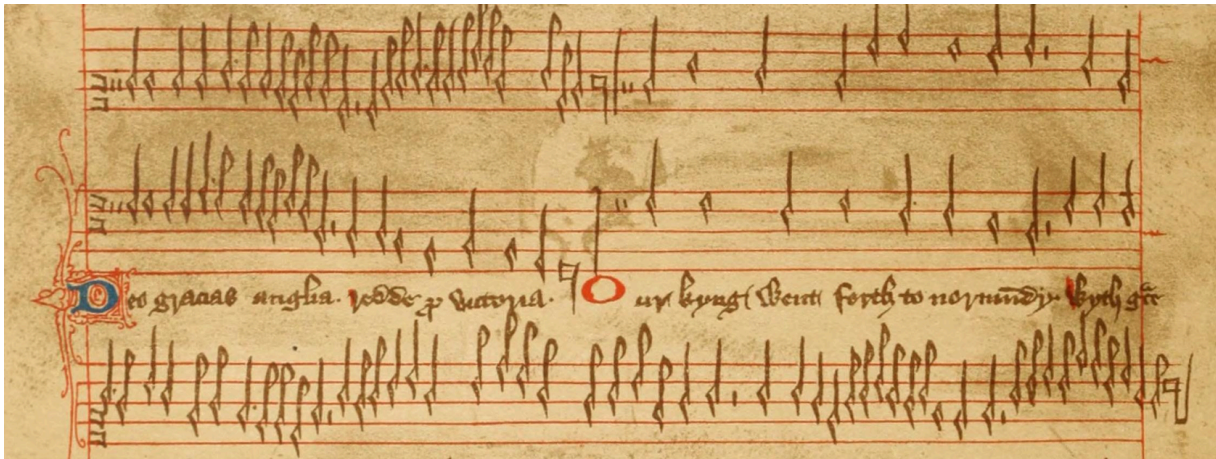 Deo gracias anglia. redde ꝓ victoria. Our kyng went forth to normādy. Wyth gᵃce